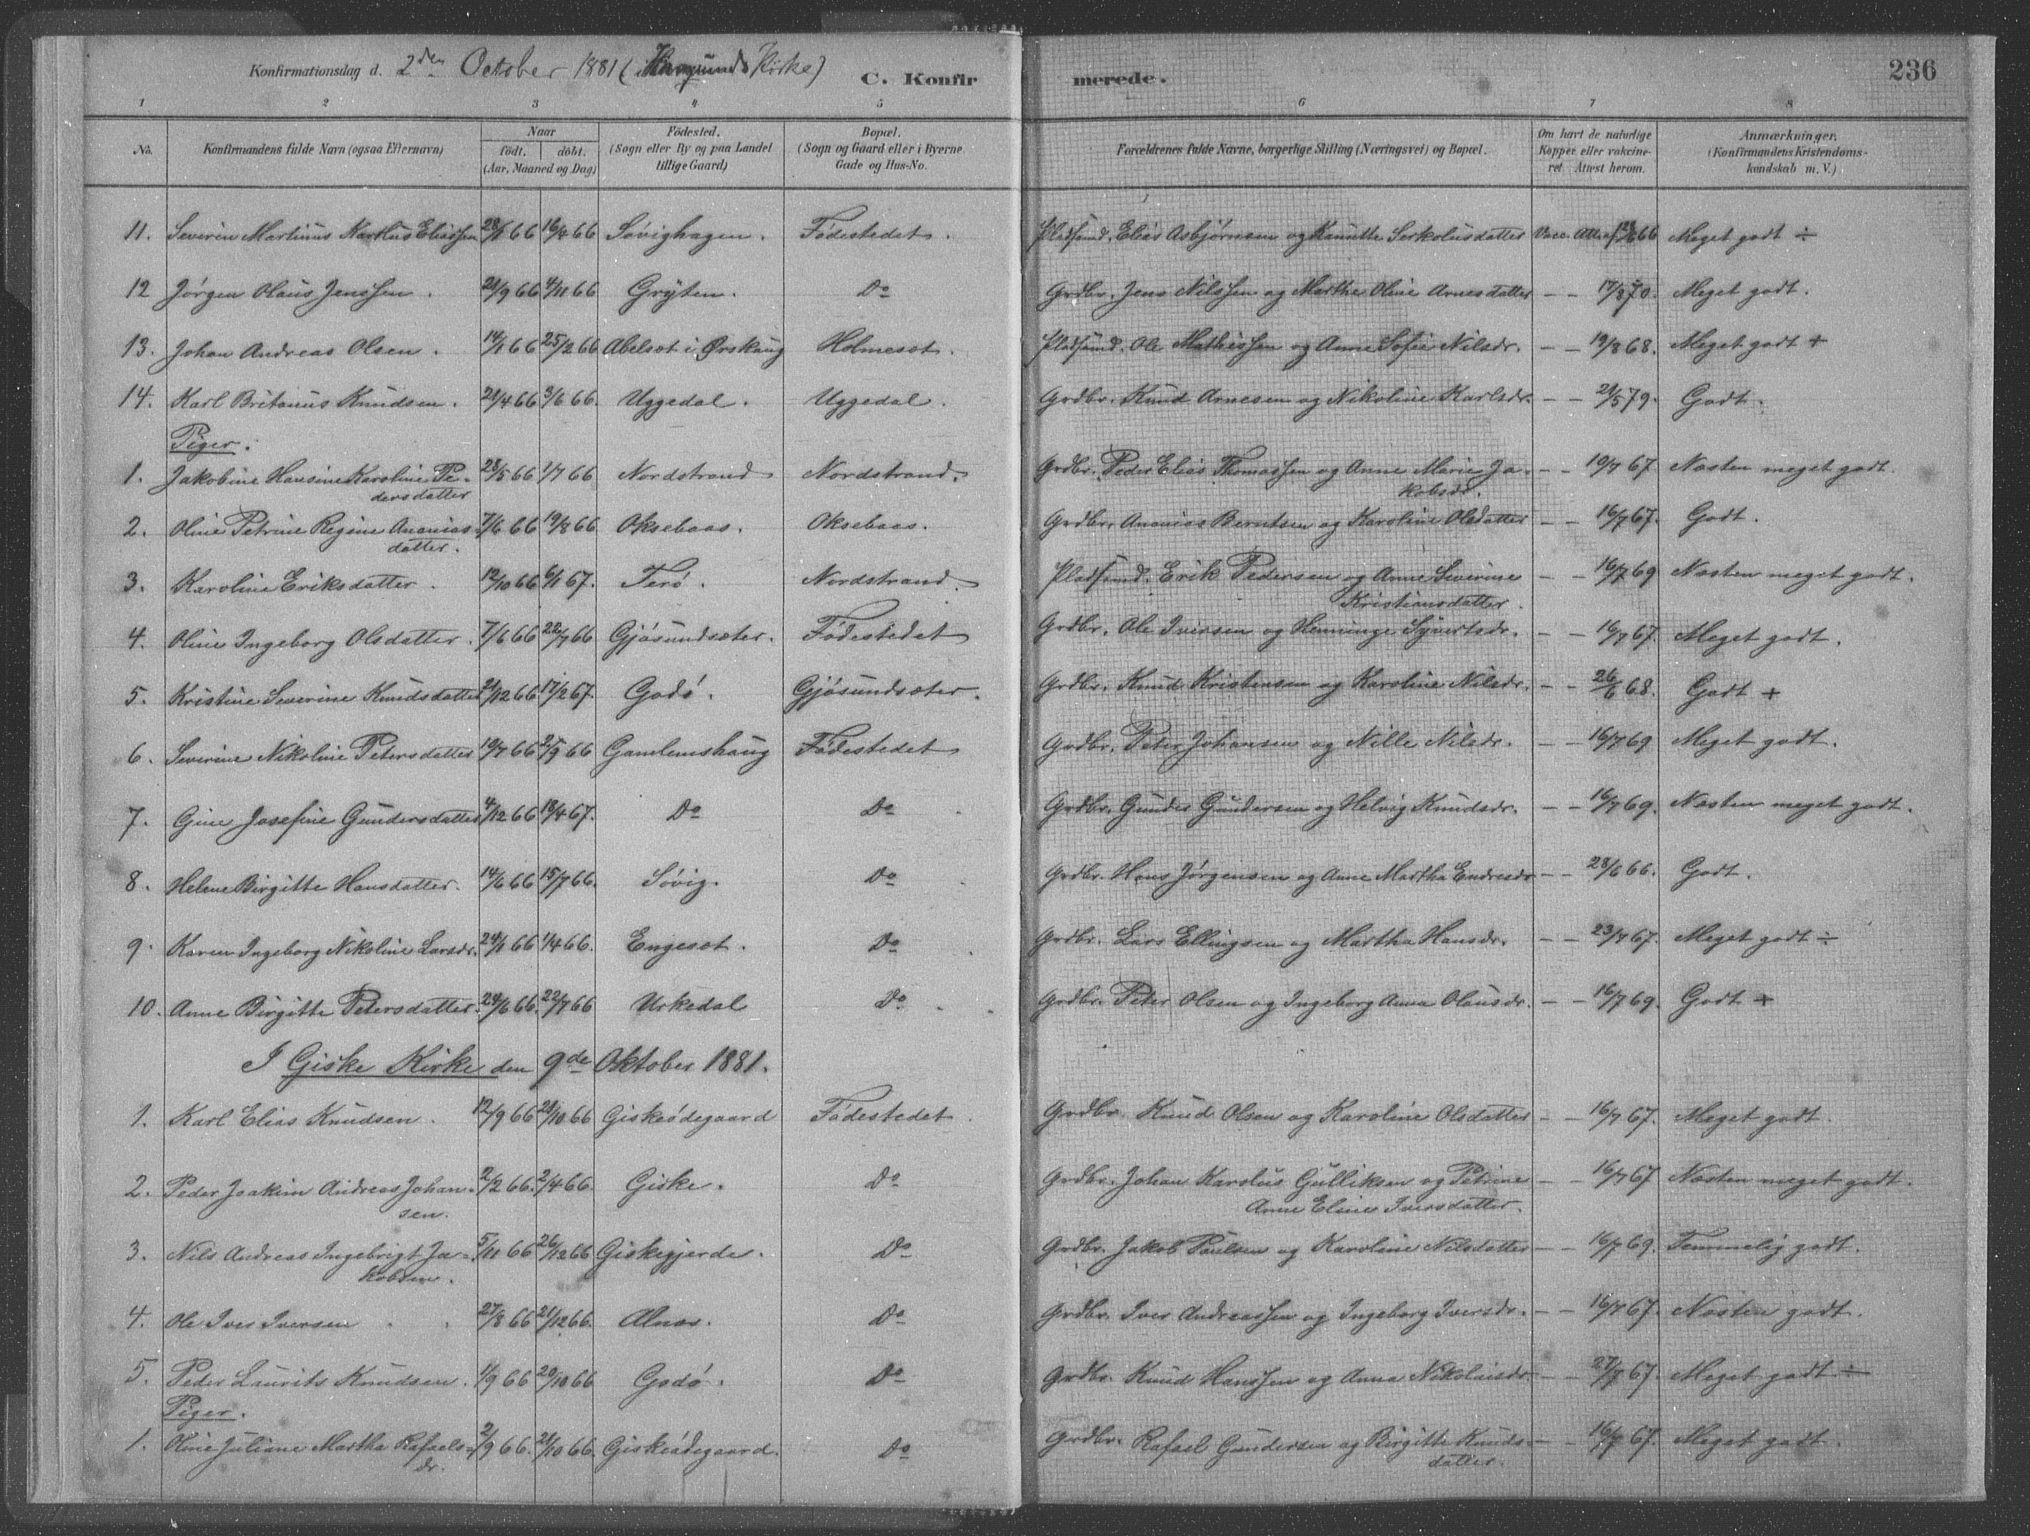 Konfirmationsdag d. 2den October 1881 (Borgunds Kirke) C. Konfirmerede. 236
1 2 3 4 5 6 7 8
No. Konfirmandens fulde Navn (ogsaa Efternavn) Naar født. døbt. (Aar, Maaned og Dag) Fødested. (Sogn eller By og paa Landet tillige Gaard) Bopæl. (Sogn og Gaard eller i Byerne Gade og Hus-No. Forældrenes fulde Navne, borgerlige Stilling (Næringsvei) og Bopæl. Om havt de naturlige Kopper eller vaccineret Attest herom. Anmærkninger. (Konfirmandens Kristendomskundskab m. V.)
11. Severin Martinus Karelius Eliassen 28/1 66 16/4 66 Søvighagen. Fødestedet. Pladsmd. Elias Asbjørnsen og Hanutte Serkolusdatter Vacc. Attest 66 Meget godt ÷
12 Jørgen Olaus Jenssen. 21/9 66 4/11 66 Gryten. Do Grdbr. Jens Nilssen og Marthe Oline Arnesdatter — — 17/8 70. Meget godt.
13. Johan Andreas Olsen. 14/1 66 25/2 66 Abelset i Ørskaug Holmeset. Pladsmd. Ole Mathissen og Anne Sofie Nilsdr. — — 19/8 68. Meget godt +
14. Karl Britanus Knudsen. 21/4 66 3/6 66. Uggedal. Uggedal. Grdbr. Knud Arnesen og Nikoline Karlsdr. — — 21/5 79. Godt.
Piger.
1. Jakobine Hansine Karoline Pedersdatter 28/5 66 1/7 66 Nordstrand Nordstrand. Grdbr. Peder Elias Thomassen og Anne Marie Jakobsdr. — — 19/7 67. Næsten meget godt.
2. Oline Petrine Regine Ananiasdatter. 7/6 66 19/8 66 Oksebaas. Oksebaas. Grdbr. Ananias Berntsen og Karoline Olsdatter 16/7 67. Godt.
3. Karoline Eriksdatter. 12/10 66 6/1 67. Terø. Nordstrand. Pladsmd. Erik Pedersen og Anne Severine Kristiansdatter. — 16/7 69 Næsten meget godt.
4. Oline Ingeborg Olsdatter. 7/6 66 22/7 66 Gjøsundsæter. Fødestedet Grdbr. Ole Iversen og Henninge Syvertsdr. — — 16/7 67. Meget godt.
5. Kristine Severine Knudsdatter 21/12 66 17/2 67. Godø. Gjøsundsæter. Grdbr. Knud Kristensen og Karoline Nilsdr. — — 26/6 68. Godt +
6. Severine Nikoline Petersdatter 19/7 66 2/9 66 Gamlemshaug Fødestedet Grdbr. Peter Johansen og Nille Nilsdr. — — 16/7 69 Meget godt.
7. Gine Josefine Gundersdatter 4/12 66 18/4 67. Do Do Grdbr. Gunder Gundersen og Helvig Knudsdr. — — 16/7 69. Næsten meget godt.
8. Helene Birgitte Hansdatter. 14/6 66 15/7 66. Søvig. Do Grdbr. Hans Jørgensen og Anne Martha Endresdr — — 28/6 66. Godt.
9. Karen Ingeborg Nikoline Larsdr. 24/1 66 1/4 66. Engeset. Do Grdbr. Lars Ellingsen og Martha Hansdr. — — 23/7 67. Meget godt ÷
10. Anne Birgitte Petersdatter. 24/6 66. 22/7 66 Urkedal Do Grdbr. Peter Olsen og Ingeborg Anna Olausdr. — — 16/7 69. Godt +
I Giske Kirke den 9de Oktober 1881.
1. Karl Elias Knudsen. 12/9 66 21/10 66 Giskeødegaard Fødestedet. Grdbr. Knud Olsen og Karoline Olsdatter — — 16/7 67. Meget godt.
2. Peder Joakim Andreas Johansen. 2/2 66. 2/4 66. Giske. Do Grdbr. Johan Karolus Gulliksen og Petrine Anne Eline Iversdatter. — — 16/7 67 Næsten meget godt.
3. Nils Andreas Ingebrigt Jakobsen. 5/11 66 26/12 66 Giskegjerde. Do Grdbr. Jakob Paulsen og Karoline Nilsdatter — — 16/7 69. Temmelig godt.
4. Ole Iver Iversen 27/8 66 21/12 66. Alnæs. Do Grdbr. Iver Andreassen og Ingeborg Iversdr. — — 16/7 67. Næsten godt.
5. Peder Laurits Knudsen. 1/9 66 20/10 66 Godø. Do Grdbr. Knud Hanssen og Anna Nikolaisdr. — — 27/7 67. Meget godt ÷
Piger.
1. Oline Juliane Martha Rafaelsdr. 2/9 66. 21/10 66 Giskeødegaard. Do Grdbr. Rafael Gundersen og Birgitte Knudsdatter. — — 16/7 67. Meget godt.